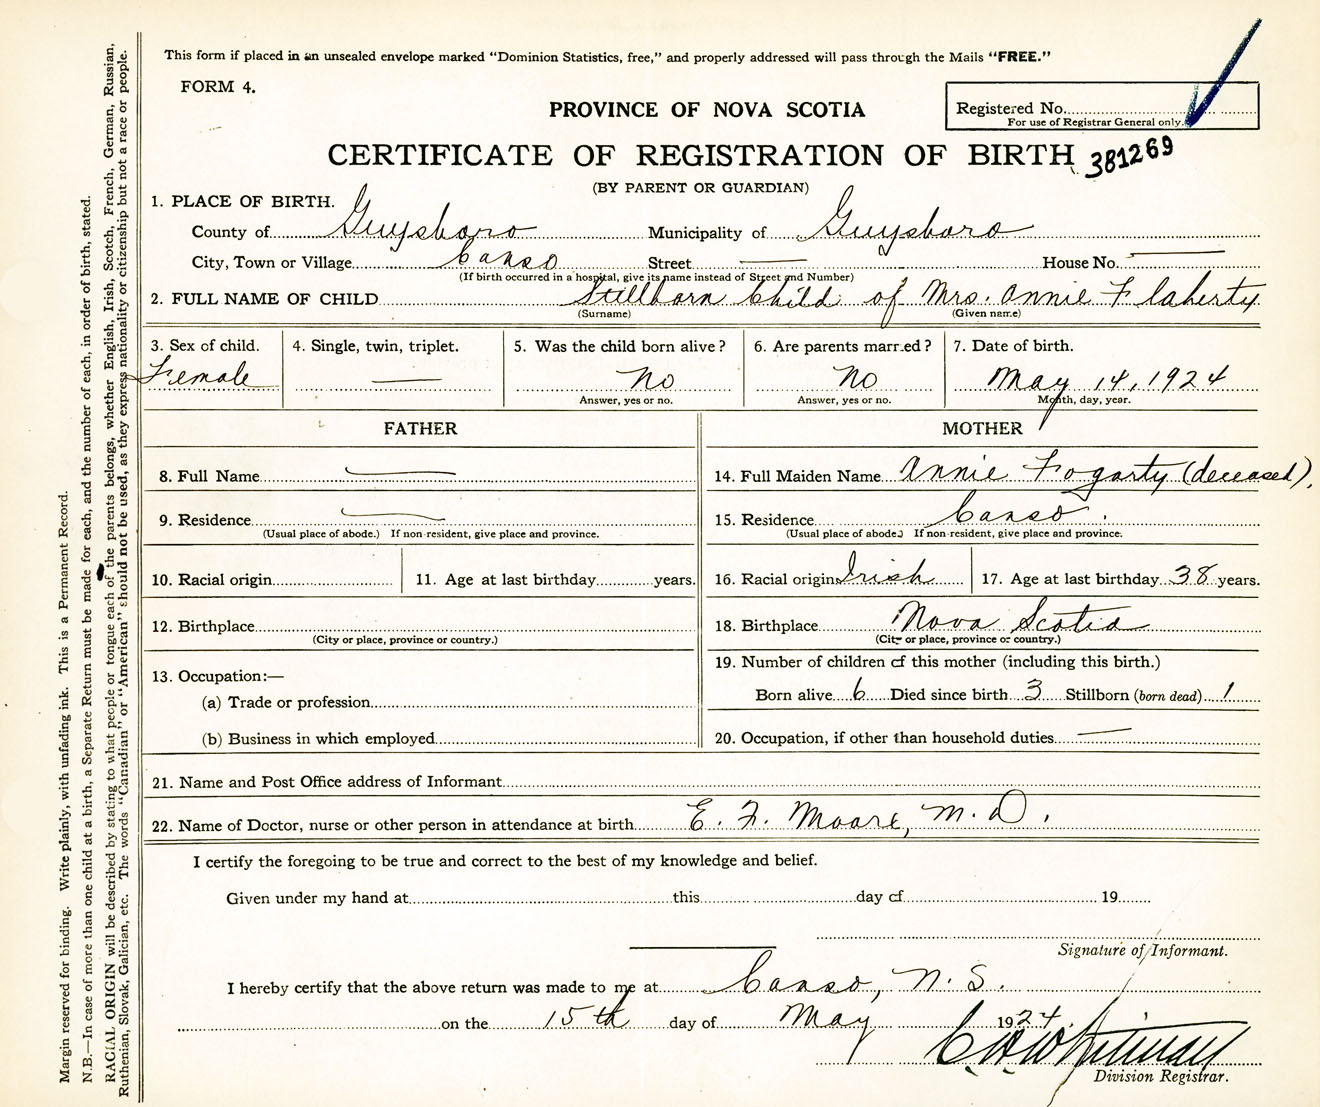 This form if placed in an unsealed envelope marked "Dominion Statistics, free," and properly addressed will pass through the Mails "FREE."
FORM 4.
PROVINCE OF NOVA SCOTIA
Registered No.
For use of Registrar General only.
CERTIFICATE OF REGISTRATION OF BIRTH 381269
(BY PARENT OR GUARDIAN)
1. PLACE OF BIRTH.
County of Guysboro Municipality of Guysboro
City, Town or Village Canso Street — House No. —
(If birth occurred in a hospital, give its name instead of Street and Number)
2. FULL NAME OF CHILD Stillborn Child of Mrs. Annie Flaherty
(Surname) (Given name)
3. Sex of child. 4. Single, twin, triplet. 5. Was the child born alive? 6. Are parents married? 7. Date of birth.
Female — No No May 14, 1924
Answer, yes or no. Answer, yes or no. Month, day, year.
FATHER MOTHER
8. Full Name — 14. Full Maiden Name Annie Fogarty (deceased).
9. Residence — 15. Residence Canso.
(Usual place of abode.) If non-resident, give place and province. (Usual place of abode.) If non-resident, give place and province.
10. Racial origin 11. Age at last birthday years. 16. Racial origin Irish 17. Age at last birthday 38 years.
12. Birthplace 18. Birthplace Nova Scotia
(City or place, province or country.) (City or place, province or country.)
13. Occupation:— 19. Number of children of this mother (including this birth.)
(a) Trade or profession Born alive 6 Died since birth 3 Stillborn (born dead) 1
(b) Business in which employed 20. Occupation, if other than household duties —
21. Name and Post Office address of Informant
22. Name of Doctor, nurse or other person in attendance at birth E. F. Moore, M.D.
I certify the foregoing to be true and correct to the best of my knowledge and belief.
Given under my hand at this day of 19
Signature of Informant.
I hereby certify that the above return was made to me at Canso, N.S.
on the 15th day of May 1924.
C. W. Whitman
Division Registrar.
Margin reserved for binding. Write plainly, with unfading ink. This is a Permanent Record.
N.B.—In case of more than one child at a birth, a Separate Return must be made for each, and the number of each, in order of birth, stated.
RACIAL ORIGIN will be described by stating to what people or tongue each of the parents belongs, whether English, Irish, Scotch, French, German, Russian,
Ruthenian, Slovak, Galician, etc. The words "Canadian" or "American" should not be used, as they express nationality or citizenship but not a race or people.